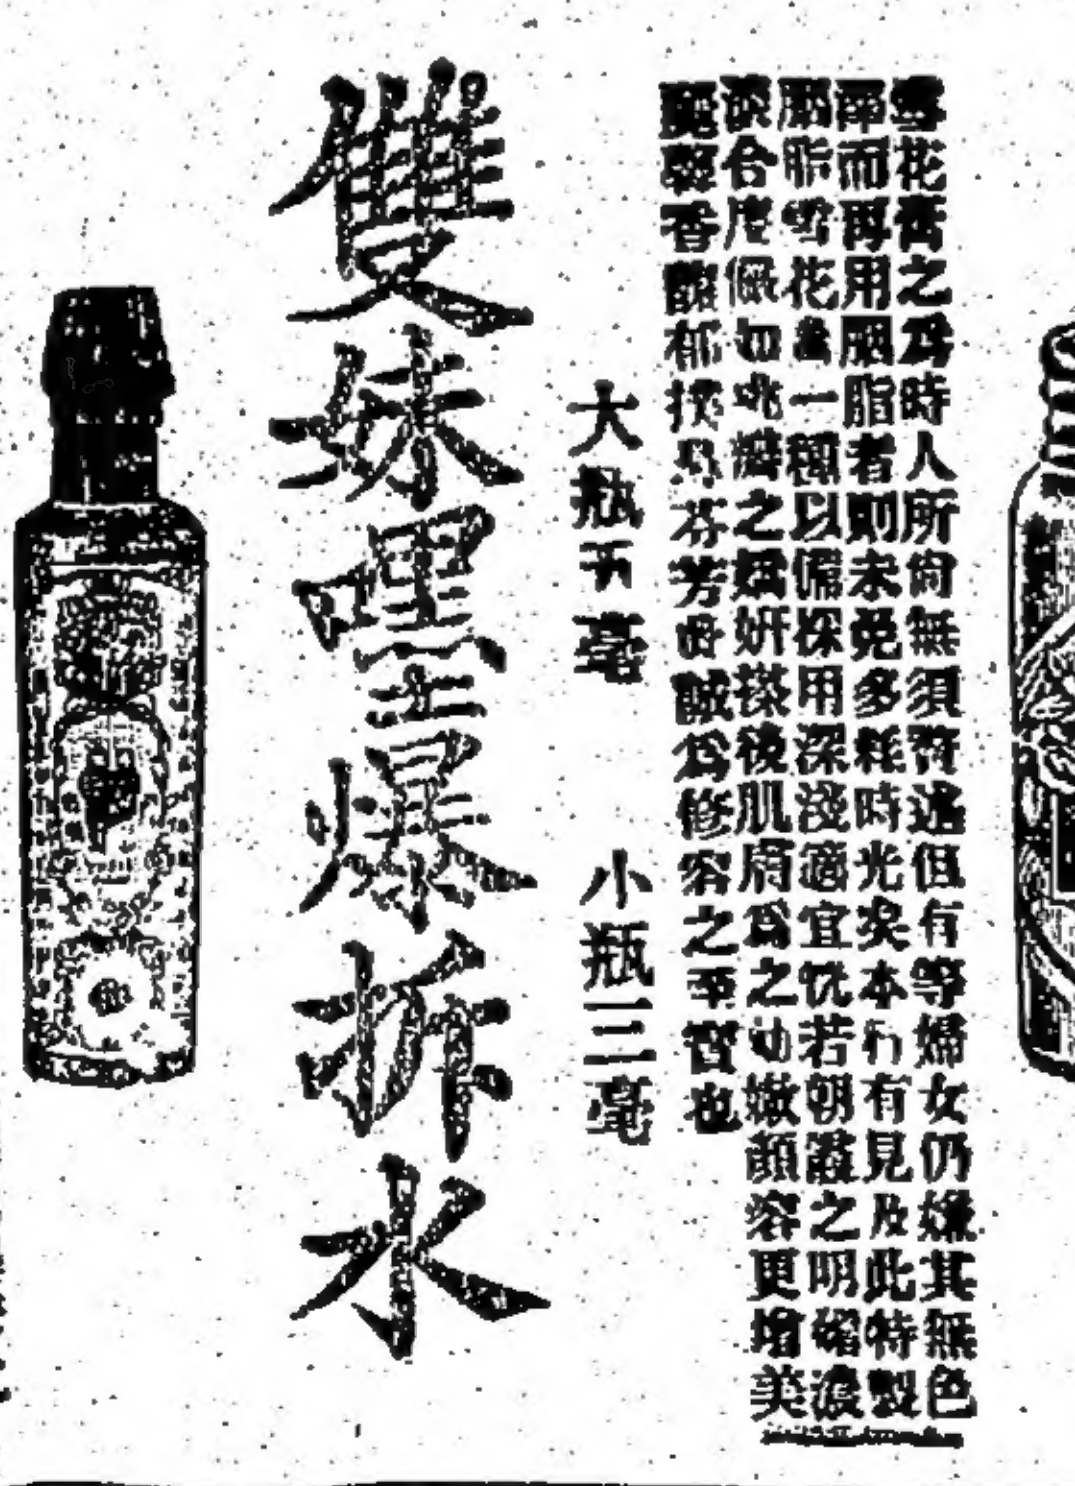 雪花膏之為時人所尙無須贅述但有等婦女仍嫌其無色
而再用胭脂者則未免多耗時光矣本行有見及此特製
胭脂雪花膏一種以備採用深淺適宜恍若朝霞之明媚濃
淡合度儼如桃瓣之嬌妍搽後肌膚為之幼嫩顏容更增美
麗 香馥郁撲鼻芬芳 誠為修容之至寶也
大瓶五毫 小瓶三毫
雙妹嘿士爆拆水